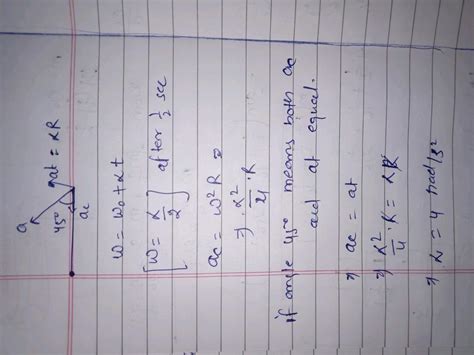 a
45°
at = αR
ac
W = W₀ + αt
[W = α/2] after 1/2 sec
ac = W²R
⇒ α²/4 . R
if angle 45° means both ac
and at equal.
⇒ ac = at
⇒ α²/4 . R = αR
⇒ α = 4 rad/s²